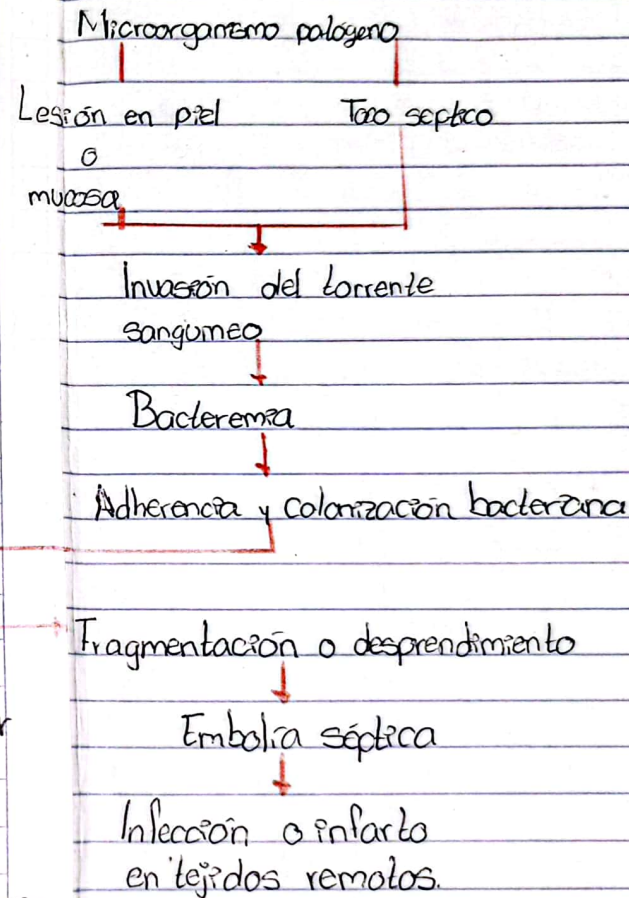 Microorganismo patógeno
Lesión en piel Foco septico
o
mucosa
Invasión del torrente
sanguineo
Bacteremia
Adherencia y colonización bacteriana
Fragmentación o desprendimiento
Embolia séptica
Infección o infarto
en tejidos remotos.